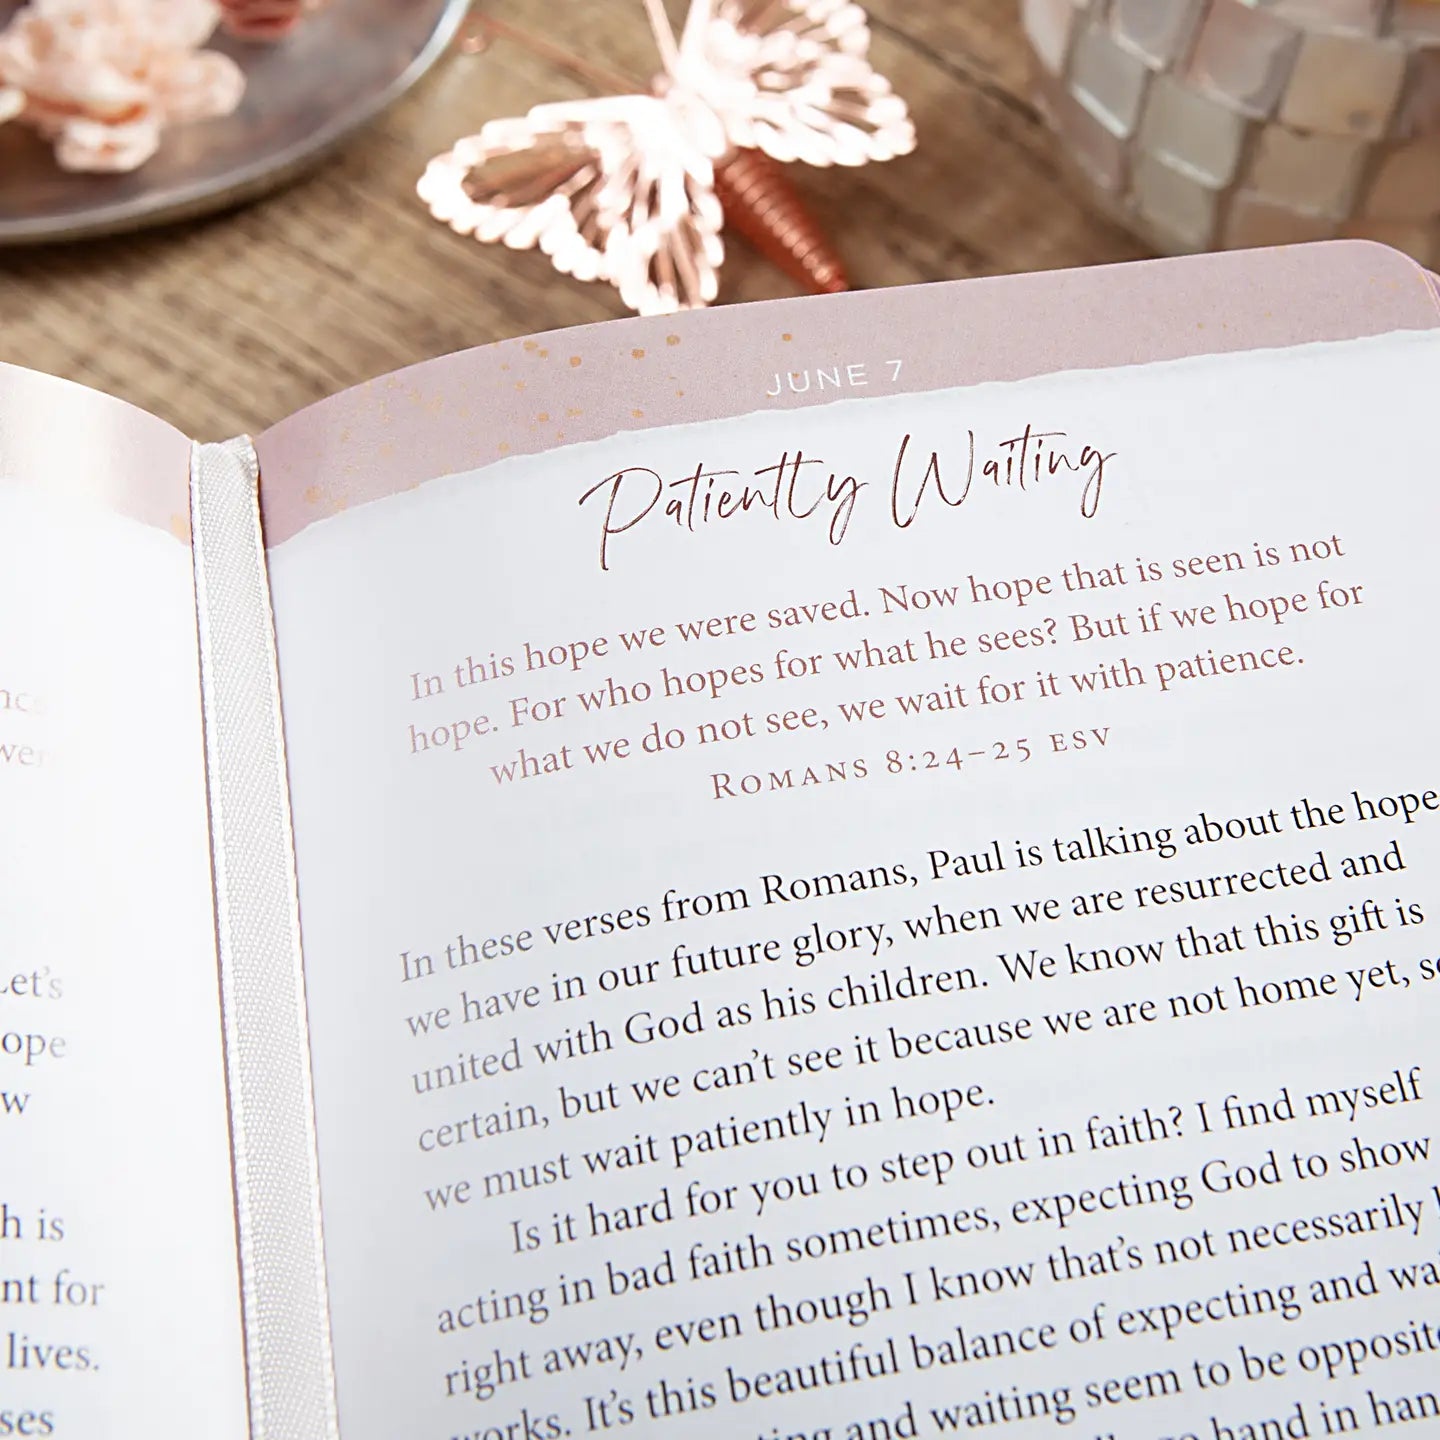 ver
Let's
ope
w
h is
nt for
lives.
ses
JUNE 7
Patiently Waiting
In this hope we were saved. Now hope that is seen is not
hope. For who hopes for what he sees? But if we hope for
what we do not see, we wait for it with patience.
ROMANS 8:24–25 ESV
In these verses from Romans, Paul is talking about the hope
we have in our future glory, when we are resurrected and
united with God as his children. We know that this gift is
certain, but we can't see it because we are not home yet, so
we must wait patiently in hope.
Is it hard for you to step out in faith? I find myself
acting in bad faith sometimes, expecting God to show
right away, even though I know that's not necessarily
works. It's this beautiful balance of expecting and wa
ting and waiting seem to be opposit
hand in han